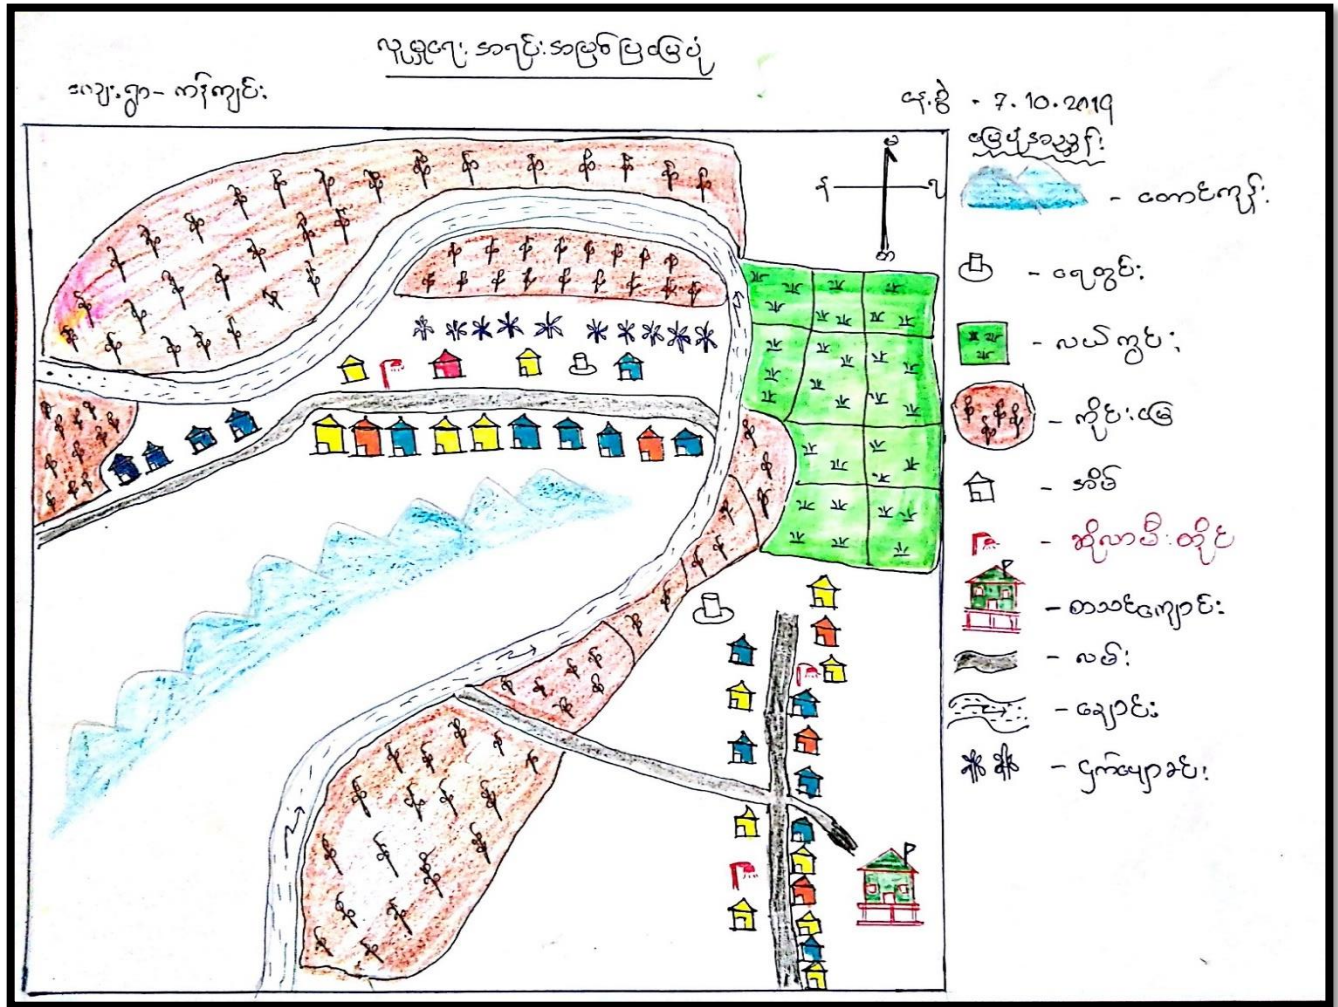 လူမှုရေး အရင်းအမြစ်ပြမြေပုံ
ကျေးရွာ - ကန်ကျင်း
နေ့စွဲ - 7.10.2019
မြေပုံအညွှန်း
မ
န
တ
- တောင်ကုန်း
- ရေတွင်း
- လယ်ကွင်း
- ကိုင်းမြေ
- အိမ်
- ဆိုလာမီးတိုင်
- စာသင်ကျောင်း
- လမ်း
- ချောင်း
- ငှက်ပျောခင်း